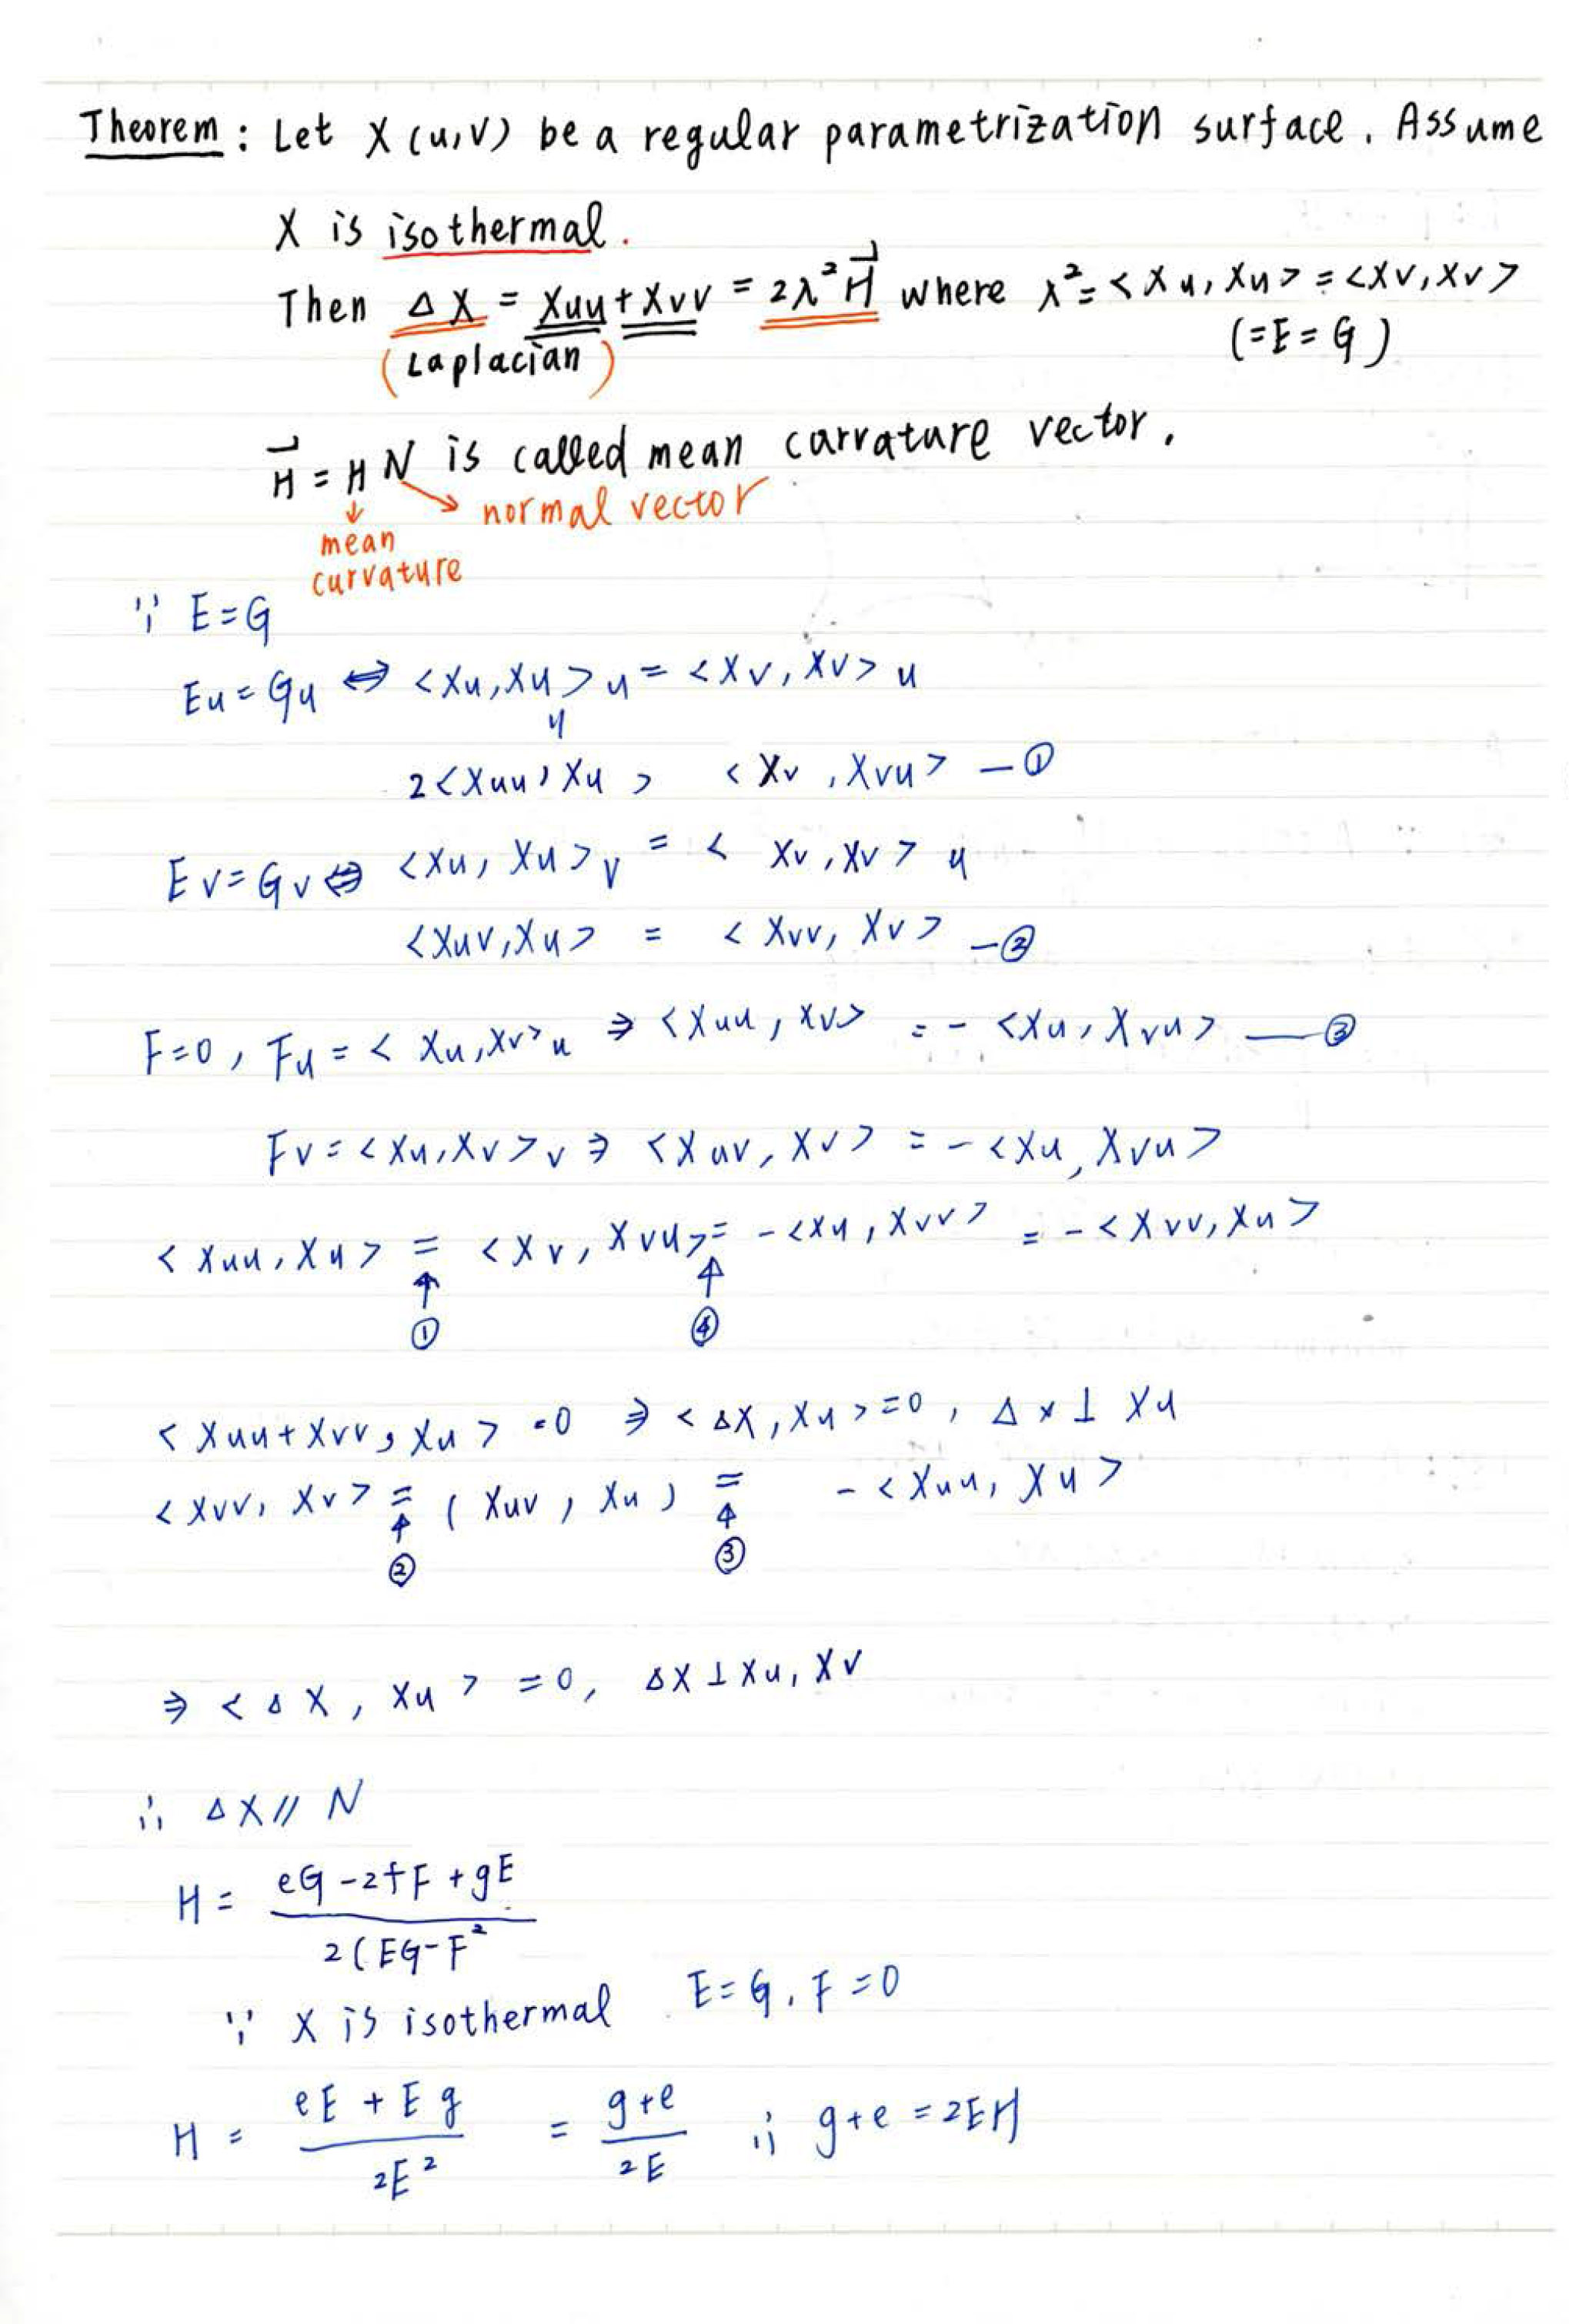 Theorem : Let X(u,v) be a regular parametrization surface. Assume
X is isothermal.
Then ΔX = Xuu + Xvv = 2λ² H⃗ where λ² = <Xu, Xu> = <Xv, Xv>
(Laplacian) (=E=G)
H⃗ = H N is called mean carvature vector.
normal vector
mean
curvature
∵ E=G
Eu = Gu ⇔ <Xu, Xu>u = <Xv, Xv>u
2<Xuu, Xu> <Xv, Xvu> —①
Ev = Gv ⇔ <Xu, Xu>v = <Xv, Xv>u
<Xuv, Xu> = <Xvv, Xv> —②
F=0, Fu = <Xu, Xv>u ⇒ <Xuu, Xv> = - <Xu, Xvu> —③
Fv = <Xu, Xv>v ⇒ <Xuv, Xv> = - <Xu, Xvu>
<Xuu, Xu> = <Xv, Xvu> = -<Xu, Xvv> = -<Xvv, Xu>
↑ ↑
① ④
<Xuu+Xvv, Xu> = 0 ⇒ <ΔX, Xu> = 0, Δx ⊥ Xu
<Xvv, Xv> = (Xuv, Xu) = -<Xuu, Xu>
↑ ↑
② ③
⇒ <ΔX, Xu> = 0, ΔX ⊥ Xu, Xv
∴ ΔX // N
H = eG -2fF + gE
2(EG-F²
∵ X is isothermal E=G, F=0
H = eE + Eg = g+e ∴ g+e = 2EH
2E² 2E